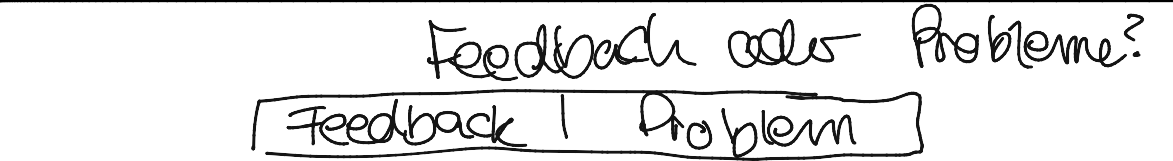 Feedback oder Probleme?
Feedback | Problem